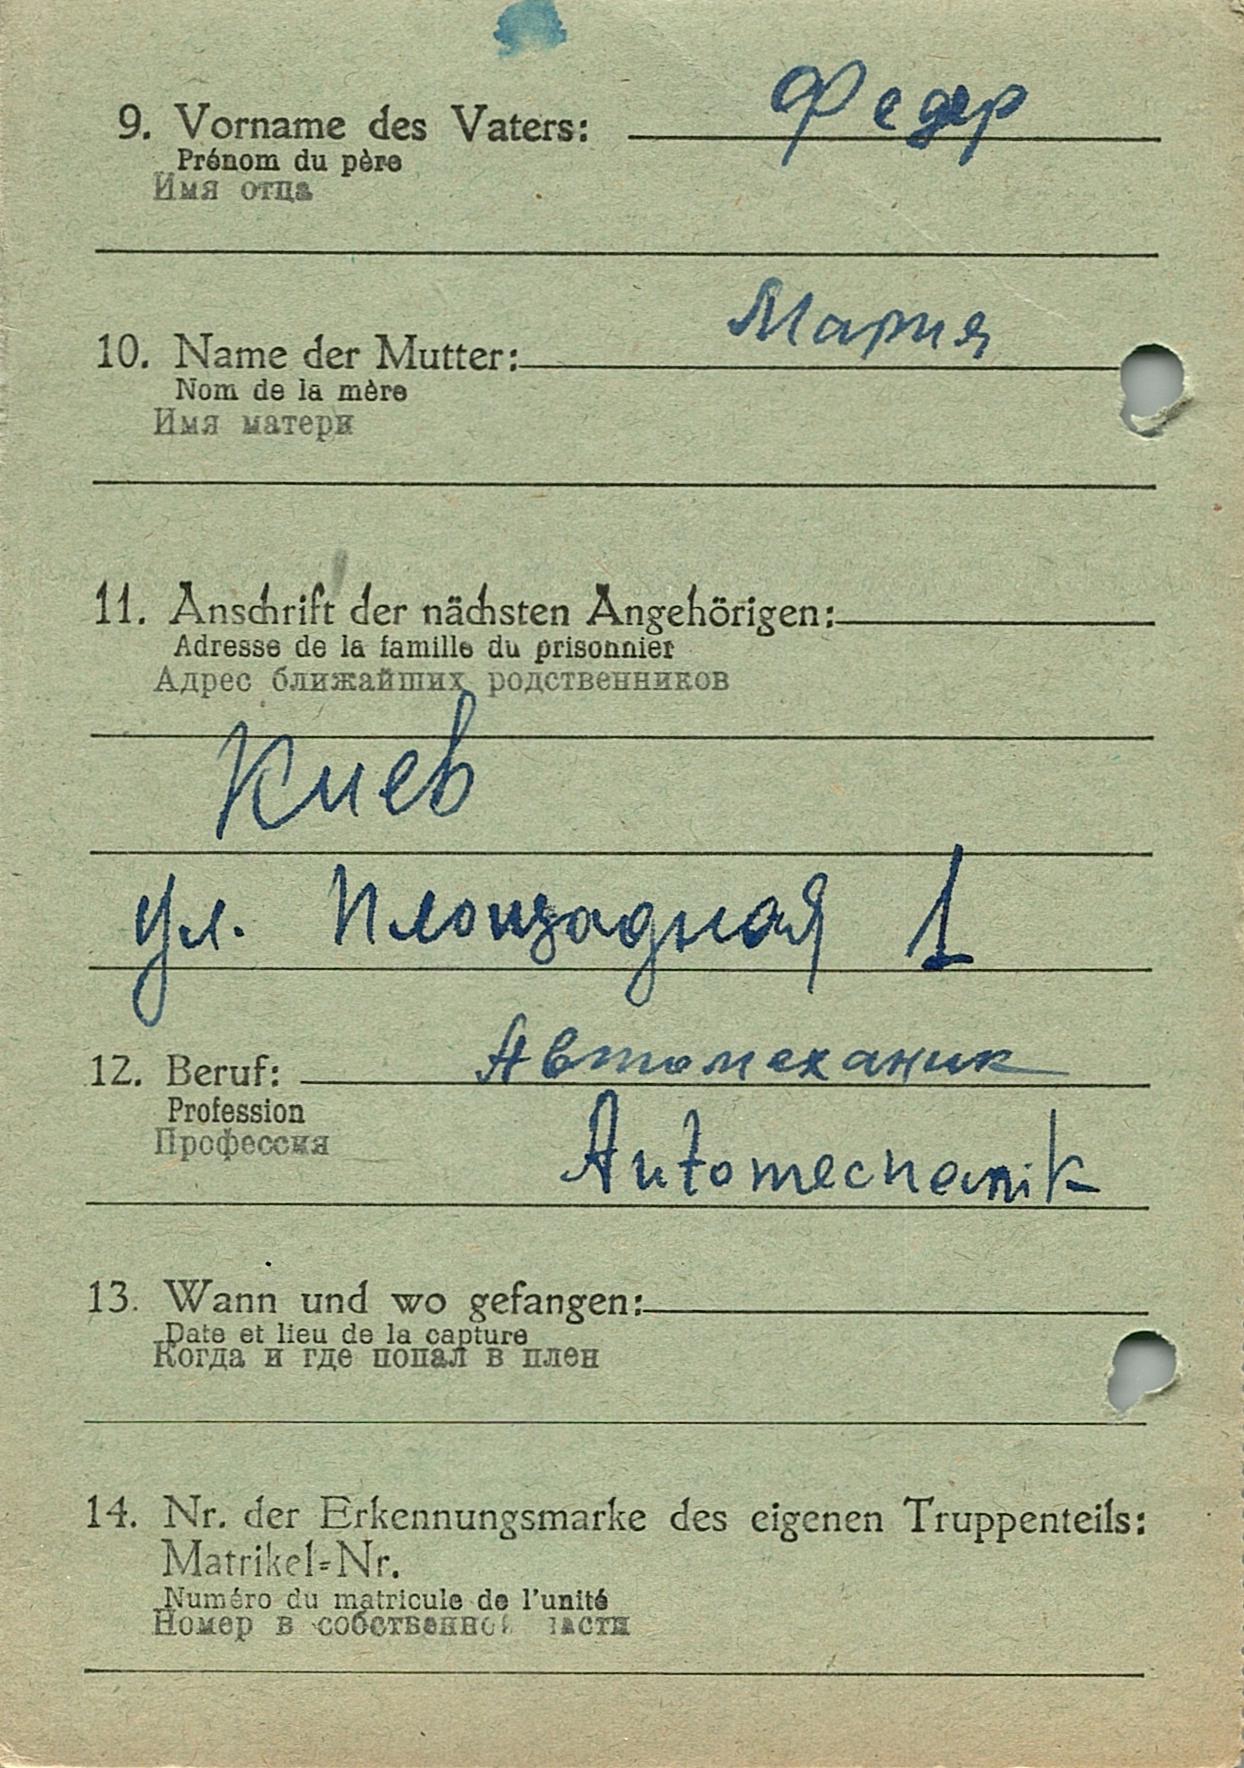 9. Vorname des Vaters: Федер
Prénom du père
Имя отца
10. Name der Mutter: Мария
Nom de la mère
Имя матери
11. Anschrift der nächsten Angehörigen:
Adresse de la famille du prisonnier
Адрес ближайших родственников
Киев
ул. Площадная 1
12. Beruf: Автомеханик
Profession
Профессия
Automechanik
13. Wann und wo gefangen:
Date et lieu de la capture
Когда и где попал в плен
14. Nr. der Erkennungsmarke des eigenen Truppenteils:
Matrikel=Nr.
Numéro du matricule de l'unité
Номер в собственной части